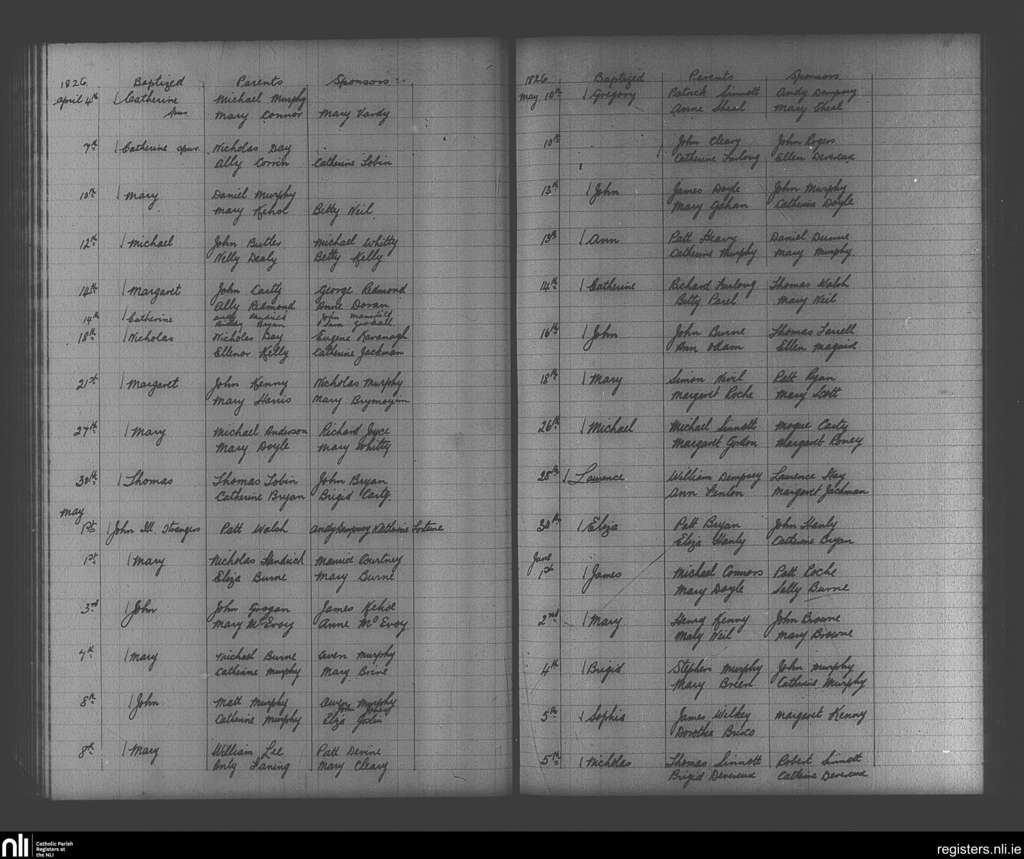 1826. Baptized Parents Sponsors
April 4th Catherine Michael Murphy
Spur Mary Connor Mary Vardy
7th Catherine Spur. Nicholas Day
Ally Corrin Catherine Tobin
10th Mary Daniel Murphy
Mary Kehol Betty Neil
12th Michael John Butler Michael Whitty
Nelly Dealy Betty Kelly
14th Margaret John Carty George Redmond
Ally Redmond Anne Doran
14th Catherine
Bryan
18th Nicholas Nicholas Day Eugene Kavanagh
Ellenor Kelly Catherine Jackman
21st Margaret John Kenny Nicholas Murphy
Mary Harris Mary
27th Mary Michael Anderson Richard Joyce
Mary Doyle Mary Whitty
30th Thomas Thomas Tobin John Bryan
Catherine Bryan Brigid Carty
May
1st John Ill. Strangers Patt Walsh Andy Dempsey Katherine
1st Mary Nicholas Handrick Maurice Courtney
Eliza Burne Mary Burne
3rd John John Grogan James Kehoe
Mary McEvoy Anne McEvoy
7th Mary Michael Burne Owen Murphy
Catherine Murphy Mary Brine
8th John Matt Murphy Murphy
Catherine Murphy Eliza
8th Mary William Lee Patt Devine
Only Faning Mary Cleary
1826 Baptized Parents Sponsors
May 10th Gregory Patrick Sinnott Andy Dempsey
Anne Sheal Mary Sheal
10th John Cleary John Rogers
Catherine Furlong Ellen Devereux
13th John James Doyle John Murphy
Mary Gahan Catherine Doyle
13th Ann Patt Heavy Daniel Dunne
Catherine Murphy Mary Murphy.
14th Catherine Richard Furlong Thomas Walsh
Betty Parel Mary Neil
16th John John Burne Thomas Farrell
Ann Odam Ellen Maguid
18th Mary Simon Nevil Patt Ryan
Margaret Roche Mary Scott
26th Michael Michael Sinnott Mogue Carty
Margaret Margaret Roney
28th Laurence William Dempsey Laurence Hay
Ann Fenlon Margaret Jackman
30th Eliza Patt Bryan John Hanly
Eliza Hanly Catherine Bryan
June
1st James Michael Connors Patt Roche
Mary Doyle Sally Burne
2nd Mary Henry Kenny John Browne
Mary Neil Mary Browne
4th Brigid Stephen Murphy John Murphy
Mary Breen Catherine Murphy
5th Sophia James Wilkey Margaret Kenny
Dorothea
5th Nicholas Thomas Sinnott Robert Sinnott
Brigid Devereux Catherine Devereux
nli Catholic Parish
Registers at
the NLI
registers.nli.ie